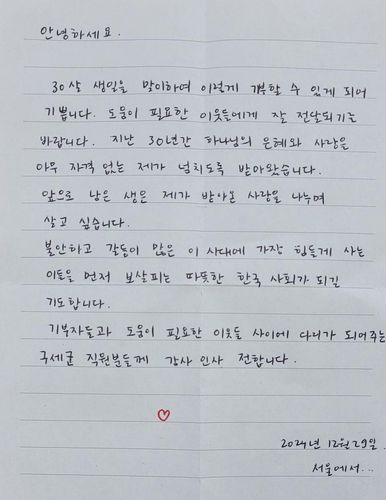 안녕하세요.
30살 생일을 맞이하여 이렇게 기부할 수 있게 되어
기쁩니다. 도움이 필요한 이웃들에게 잘 전달되기를
바랍니다. 지난 30년간 하나님의 은혜와 사랑은
아무 자격 없는 제가 넘치도록 받아왔습니다.
앞으로 남은 생은 제가 받아온 사랑을 나누며
살고 싶습니다.
불안하고 갈등이 많은 이 시대에 가장 힘들게 사는
이들을 먼저 보살피는 따뜻한 한국 사회가 되길
기도합니다.
기부자들과 도움이 필요한 이웃들 사이에 다리가 되어주는
구세군 직원분들께 감사 인사 전합니다.
2024년 12월 29일
서울에서...